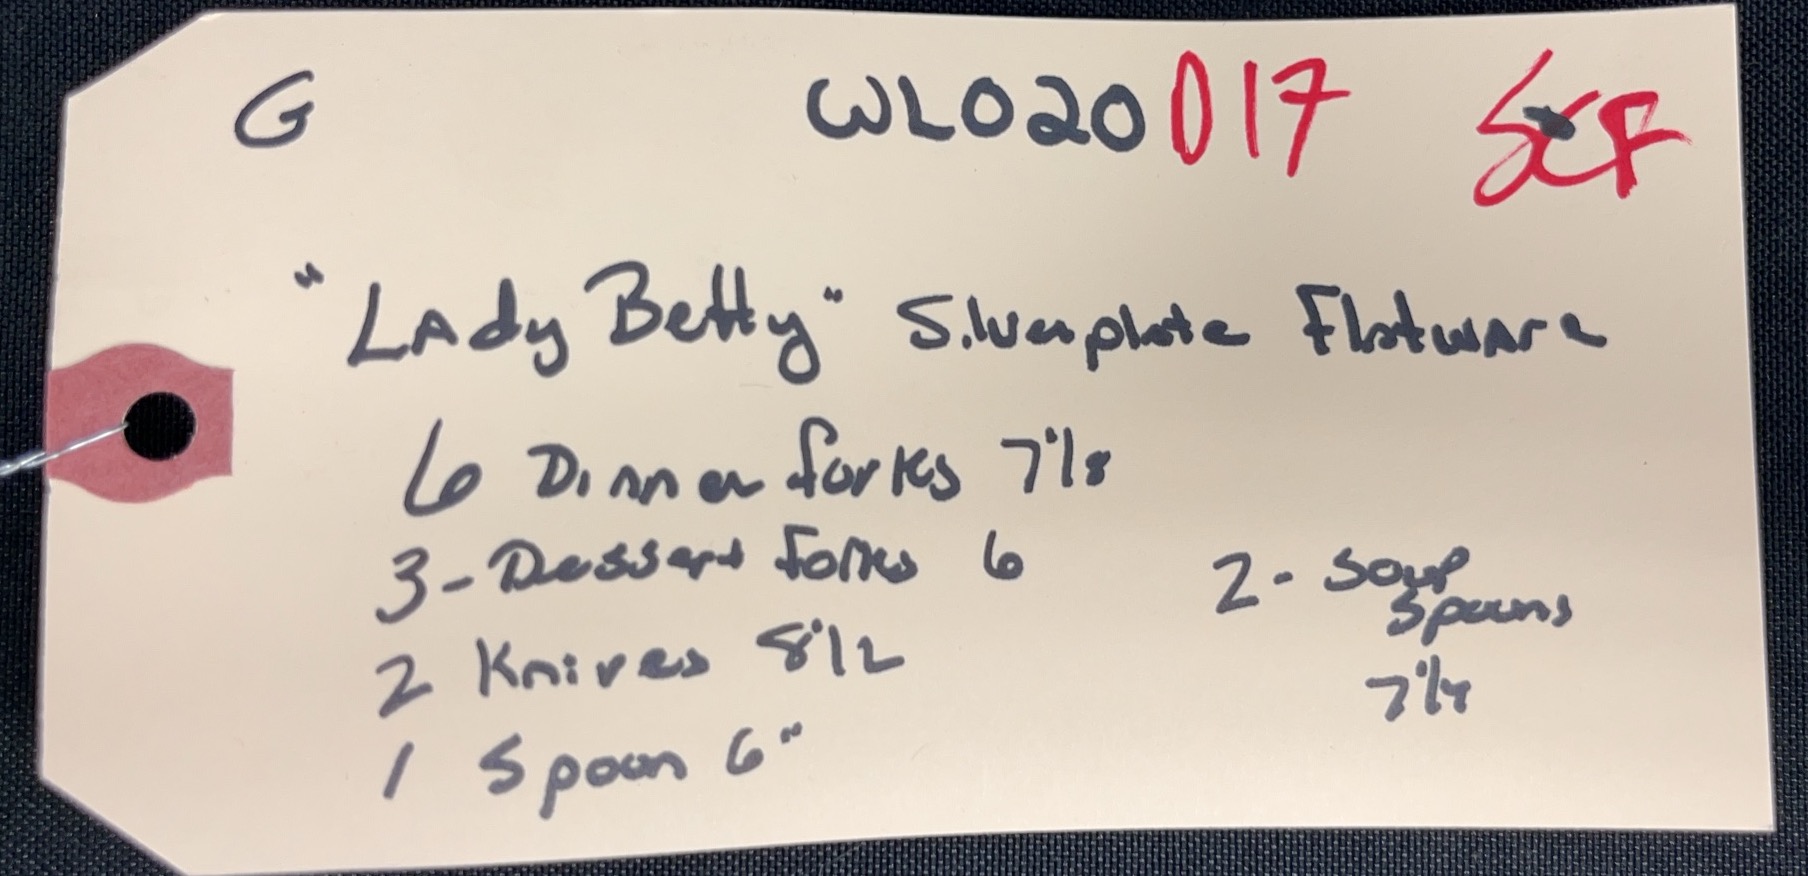 G WL020017 SCF
"LAdy Betty" Silverplate Flatware
6 Dinner forks 7 1/8
3-Dessert forks 6
2 Knives 8 1/2
1 Spoon 6"
2-Soup
Spoons
7 1/4